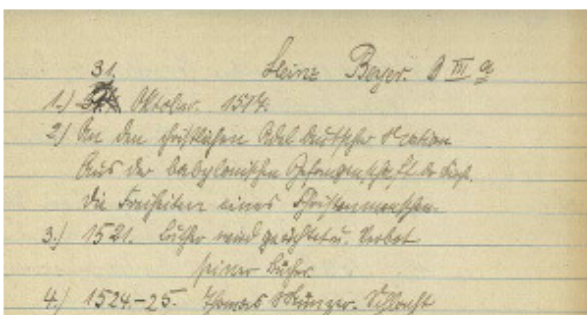 Heinz Beyer. O III a
31.
1.) Oktober. 1517.
2.) An den christlichen Adel deutscher Nation
Aus der babylonischen Gefangenschaft der
Die Freiheiten eines Christenmenschen.
3.) 1521. Luther wird geächtet. Verbot
seiner Bücher.
4.) 1524-25. Thomas Münzer. Schlacht